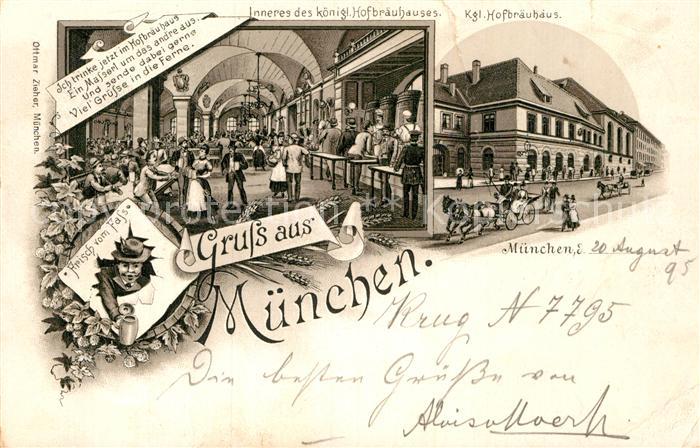 Inneres des königl. Hofbräuhauses.
Kgl. Hofbräuhaus.
Ich trinke jetzt im Hofbräuhaus
Ein Maßerl um das andre aus.
Und sende dabei gerne
Viel Grüße in die Ferne.
Ottmar Zieher, München.
Frisch vom Faß
Gruß aus
München.
München, d. 20 August
95
Krug N 7795
Die besten Grüße von
Alois